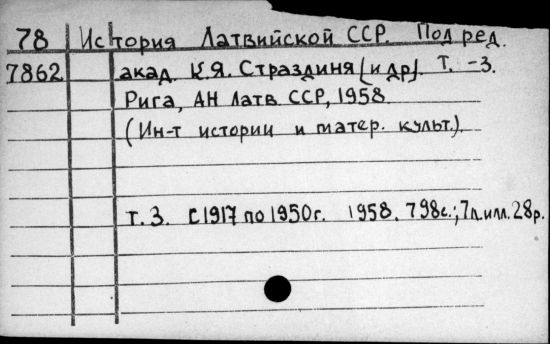 78 История Латвийской ССР. Под ред.
7862 акад. К.Я. Страздиня [и др]. Т. -3.
Рига, АН Латв. ССР, 1958.
(Ин-т истории и матер. культ.).
Т. 3. С 1917 по 1950г. 1958. 798с.; 7л. илл. 28р.